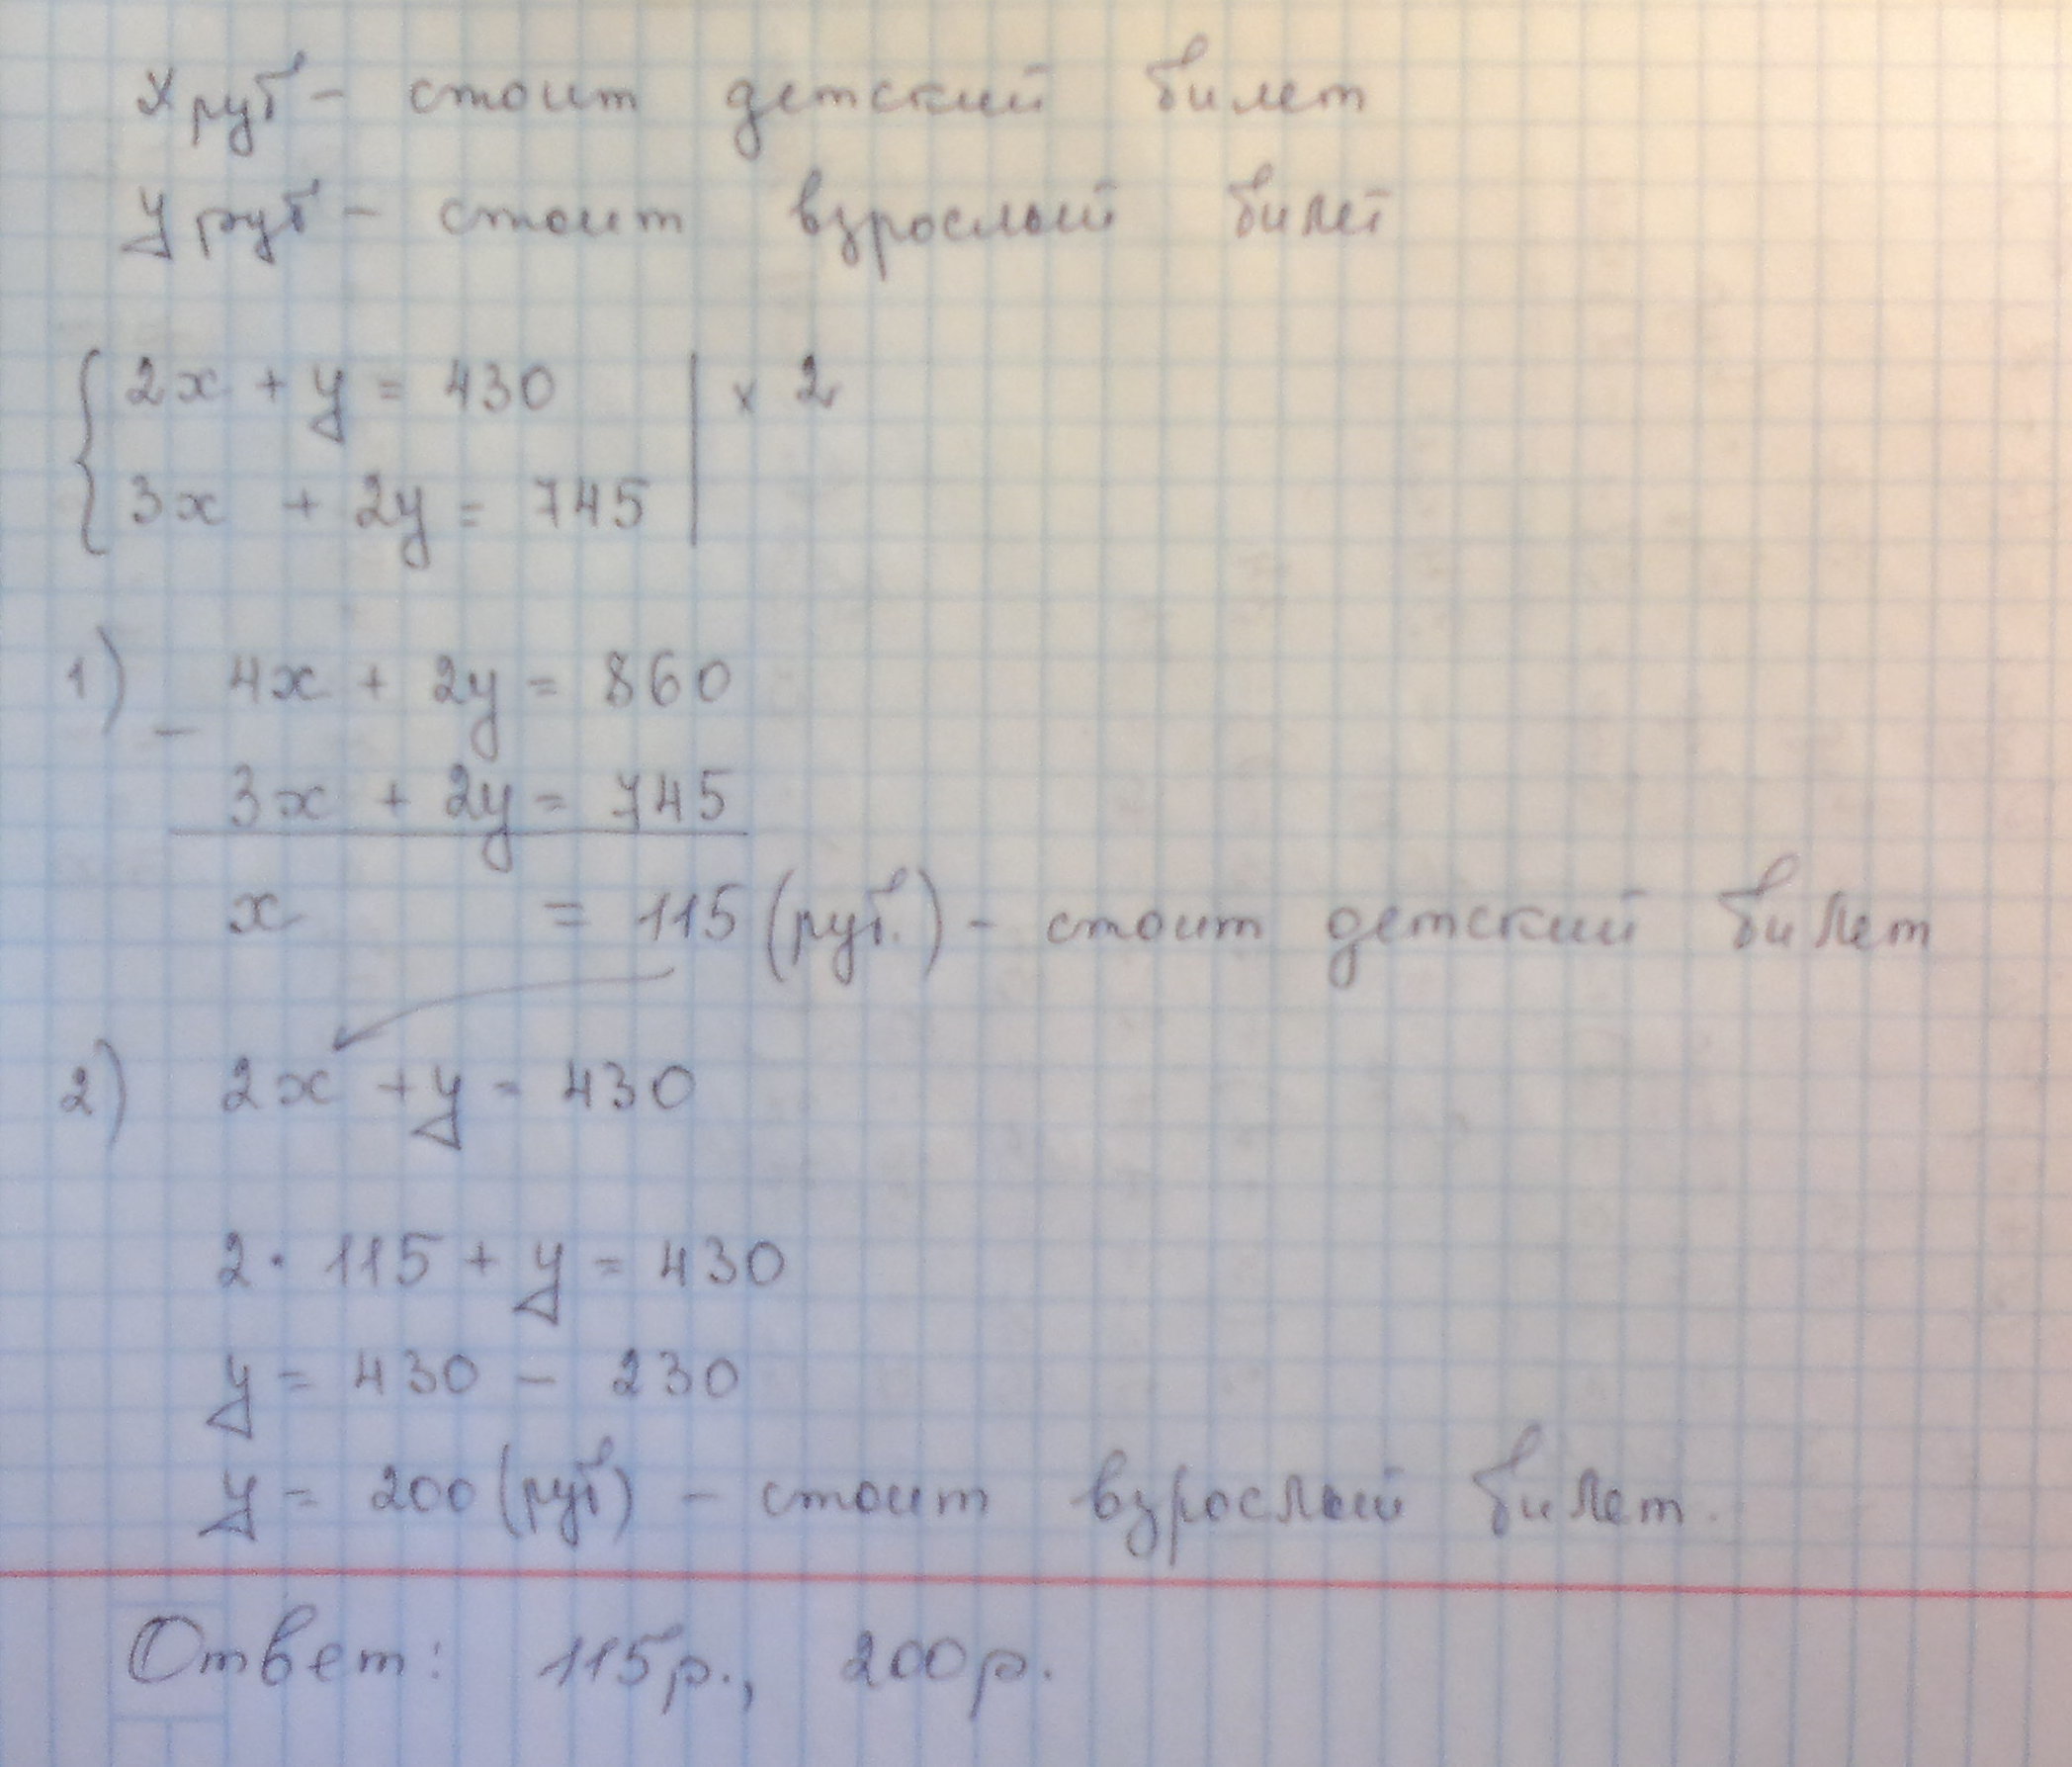 x руб – стоит детский билет
y руб – стоит взрослый билет
{ 2x + y = 430 | × 2
3x + 2y = 745
1) – 4x + 2y = 860
3x + 2y = 745
x = 115 (руб.) – стоит детский билет
2) 2x + y = 430
2 · 115 + y = 430
y = 430 – 230
y = 200 (руб) – стоит взрослый билет.
Ответ: 115р., 200р.